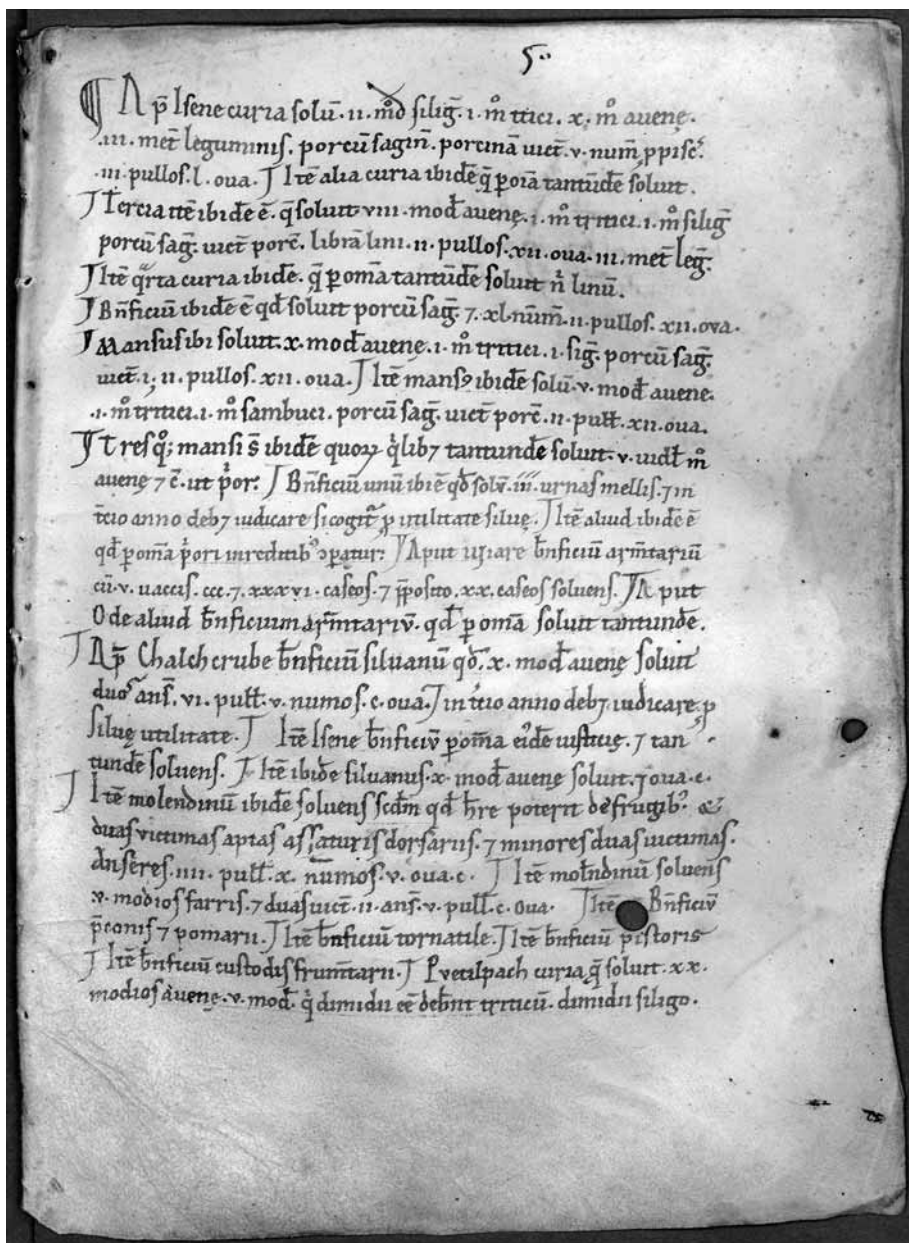 5..
¶ Ap̄ Isene curia solū. ii. m̊d siligͣ. i. m̊ tͥtici. x. m̊ avenę.
.iii. met̄ leguminis. porcū sagin̄. porcinā uict̄. v. num̄. ꝓ pisc̄.
.iii. pullos. l. ova. ⁋ Itē alia curia ibidē q̄ ꝑ oīa tantūdē soluit.
⁋ Tercia itē ibidē ē. q̄ soluit viii. mod̄ avenę. i. m̊ tͥtici. i. m̊ siligͣ
porcū saḡ. uict̄ porc̄. librā lini. ii. pullos. xii. ova. iii. met̄ leḡ.
⁋ Itē qͣrta curia ibidē. q̄ ꝑ om̄a tantūdē soluit n̄ linū.
⁋ Bn̄ficiū ibidē ē qd̄ soluit porcū saḡ. ⁊. xl. nūm̄. ii. pullos. xii. ova.
⁋ Mansus ibi soluit. x. mod̄ avenę. i. m̊ tritici. i. siḡ. porcū saḡ.
uict̄. i; ii. pullos. xii. ova. ⁋ Itē mansꝰ ibidē solū. v. mod̄ avene.
.i. m̊ tritici. i. m̊ sambuci. porcū saḡ. uict̄ porc̄. ii. pull̄. xii. ova.
⁋ Tres qͦ; mansi s̄ ibidē quoꝝ qͥlibꝫ tantundē soluit. v. uidl̄ m̊
avenę ⁊ c̄. ut pͥor. ⁋ Bn̄ficiū unū ibiē qd̄ solv̄. iii. urnas mellis. ⁊ in
t̄cio anno debꝫ iudicare si cogit᷑ ꝓ utilitate siluę. ⁋ Itē aliud ibidē ē
qd̄ ꝑ om̄a pͥori in reditibꝰ ꝯparatur. ⁋ Aput bn̄ficiū arm̄tariū
cū. v. uaccis. ccc. ⁊. xxxvi. caseos. ⁊ p̄posito. xx. caseos soluens. ⁋ Aput
Ode aliud bn̄ficium arm̄tariv̄. qd̄ ꝑ om̄a soluit tantundē.
⁋ Ap̄ Chalchcrube bn̄ficiū siluanū qd̄. x. mod̄ avenę soluit
duos ans̄. vi. pull̄. v. numos. c. ova. ⁋ in t̄cio anno debꝫ iudicare ꝓ
siluę utilitate. ⁋ Itē Isene bn̄ficiv̄ ꝑ om̄a eͥdē iusticię. ⁊ tan
tundē soluens. ⁋ Itē ibidē siluanus. x. mod̄ avenę soluit. ⁊ ova. c.
⁋ Itē molendinū ibidē soluens scd̄m qd̄ hr̄e poterit de frugibꝰ. &
duas victimas aptas assaturis dorsariis. ⁊ minores duas uictimas.
Anseres. iiii. pull̄. x. nūmos. v. ova. c. ⁋ Itē mol̄ndinū soluens
v. modios farris. ⁊ duas uict̄. ii. ans̄. v. pull̄. c. ova. ⁋ Itē Bn̄ficiv̄
p̄conis ⁊ pomarii. ⁋ Itē bn̄ficiū tornatile. ⁋ Itē bn̄ficiū pistoris
⁋ Itē bn̄ficiū custodis frum̄tarii. ⁋ Pvetilpach curia q̄ soluit. xx.
modios avenę. v. mod̄. qͥ dimidii eē debn̄t triticū. dimidii siligo.